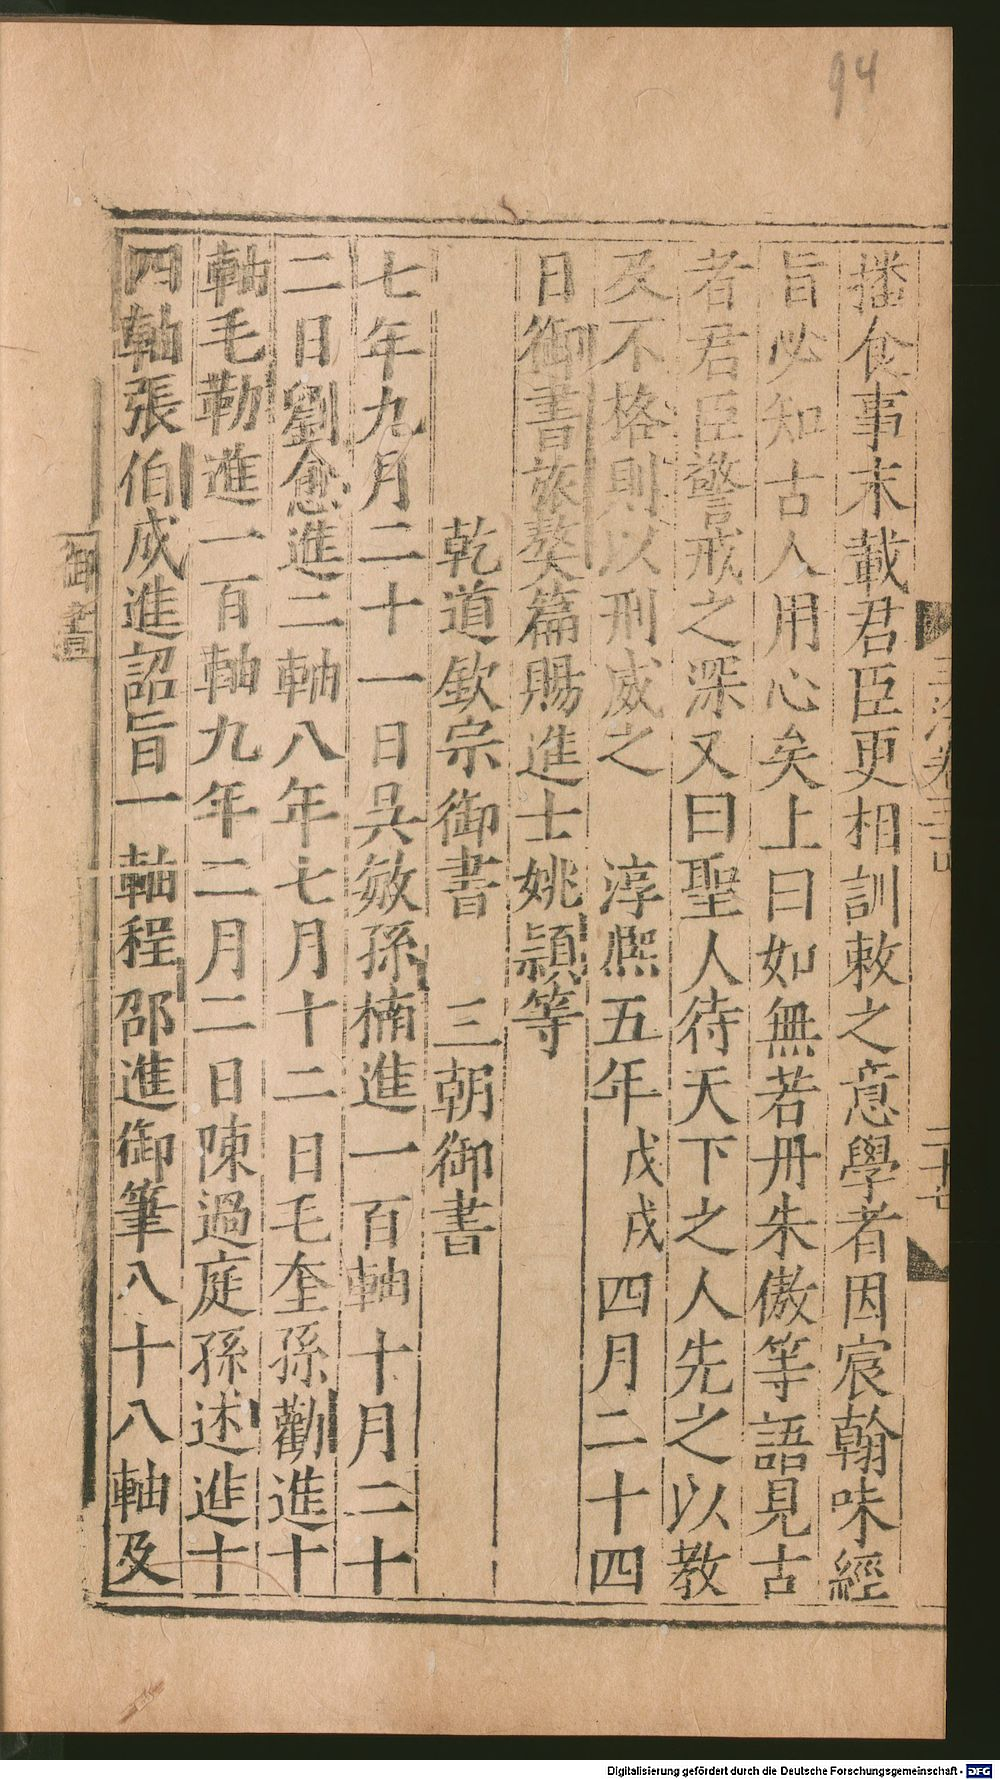 94
播食事末載君臣更相訓敕之意學者因宸翰味經
旨必知古人用心矣上曰如無若丹朱傲等語見古
者君臣警戒之深又曰聖人待天下之人先之以教
及不格則以刑威之　淳熈五年戊戌四月二十四
日御書旅獒篇賜進士姚頴等
乾道欽宗御書　三朝御書
七年九月二十一日吳敏孫楠進一百軸十月二十
二日劉愈進二軸八年七月十二日毛奎孫勸進十
軸毛勒進一百軸九年二月二日陳過庭孫述進十
四軸張伯成進詔旨一軸程邵進御筆八十八軸及
御書
Digitalisierung gefördert durch die Deutsche Forschungsgemeinschaft - DFG